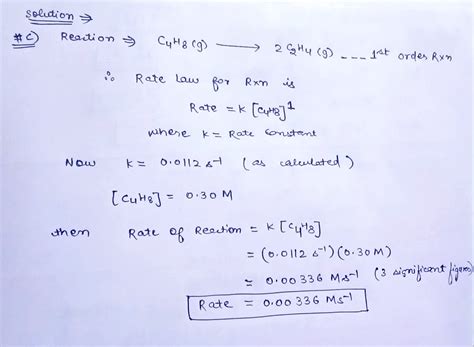 Solution →
#c) Reaction ⇒ C4H8(g) ⟶ 2 C2H4(g) --- 1st order Rxn
∴ Rate Law for Rxn is
Rate = K [C4H8]^1
where K = Rate Constant
Now K = 0.0112 s^-1 (as calculated)
[C4H8] = 0.30 M
then Rate of Reaction = K [C4H8]
= (0.0112 s^-1) (0.30 M)
= 0.00336 Ms^-1 (3 significant figures)
Rate = 0.00336 Ms^-1